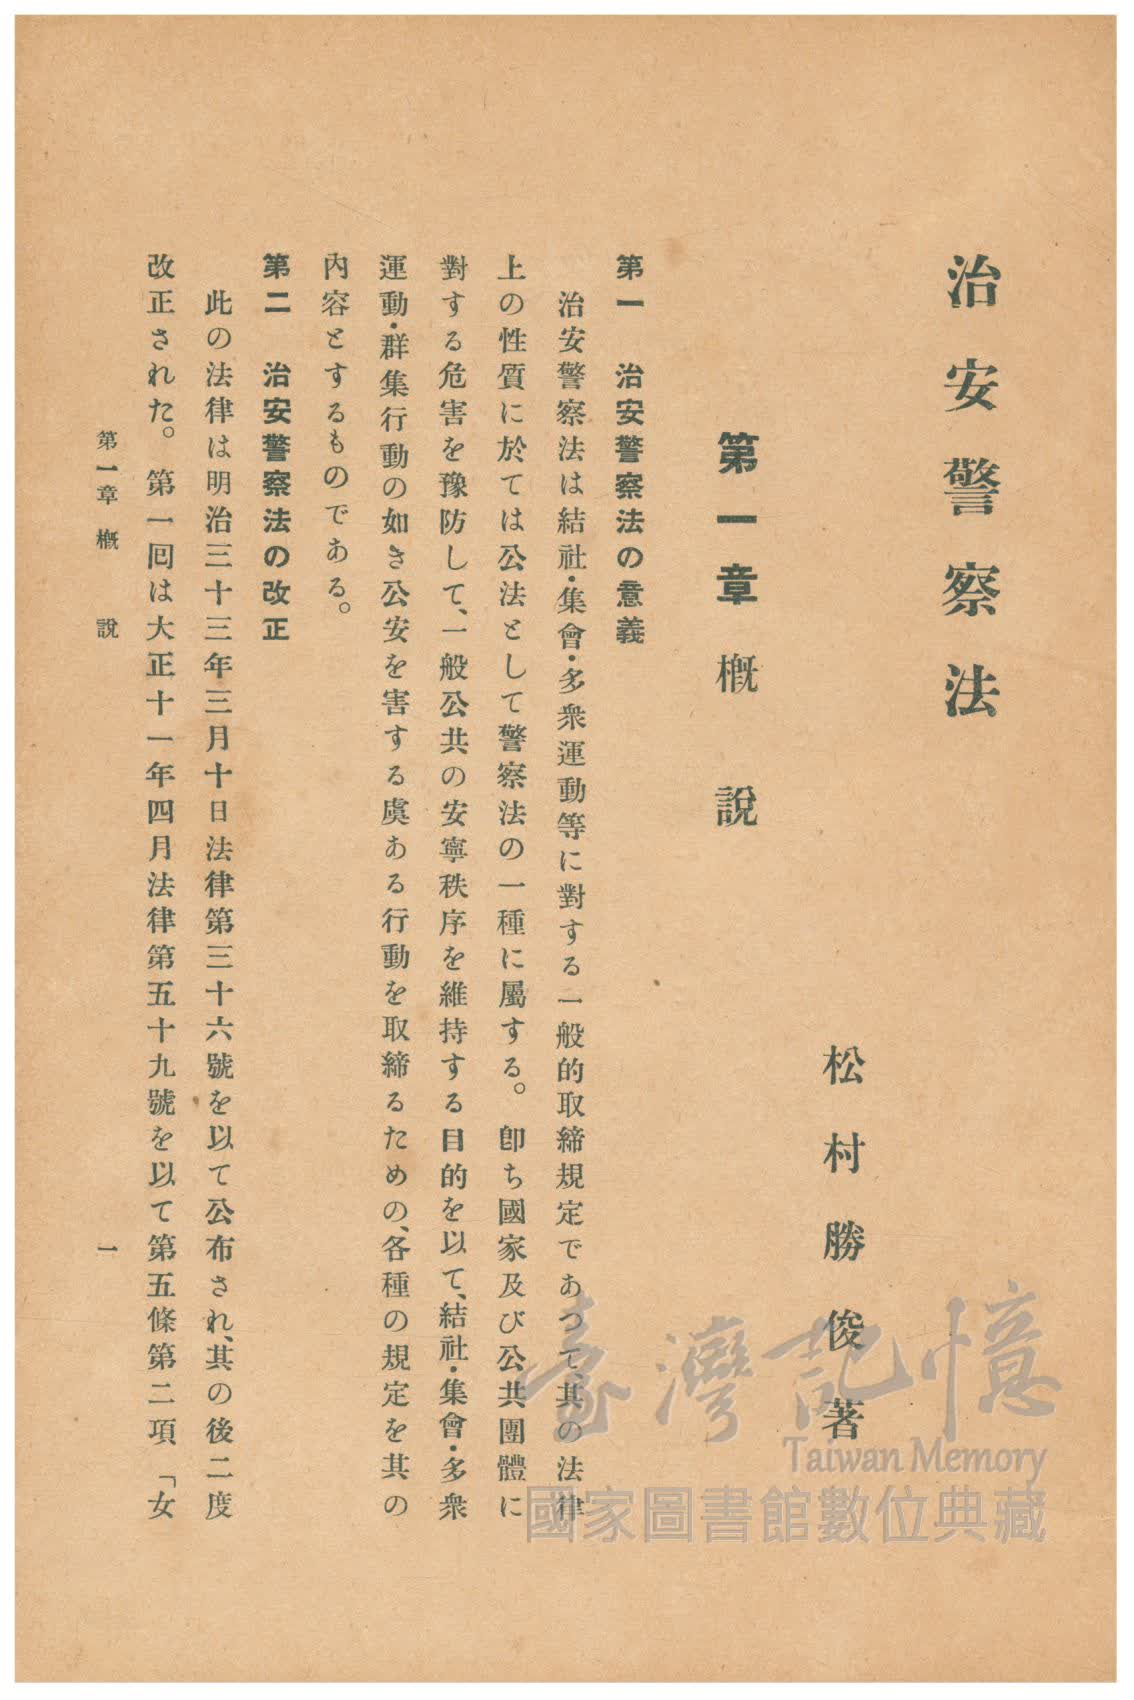 治安警察法
松村勝俊著
第一章 概說
第一 治安警察法の意義
治安警察法は結社・集會・多衆運動等に對する一般的取締規定であつて、其の法律
上の性質に於ては公法として警察法の一種に屬する。卽ち國家及び公共團體に
對する危害を豫防して、一般公共の安寧秩序を維持する目的を以て、結社・集會・多衆
運動・群集行動の如き公安を害する虞ある行動を取締るための、各種の規定を其の
內容とするものである。
第二 治安警察法の改正
此の法律は明治三十三年三月十日法律第三十六號を以て公布され、其の後二度
改正された。第一囘は大正十一年四月法律第五十九號を以て第五條第二項「女
第一章 概說
一
臺灣記憶
Taiwan Memory
國家圖書館數位典藏